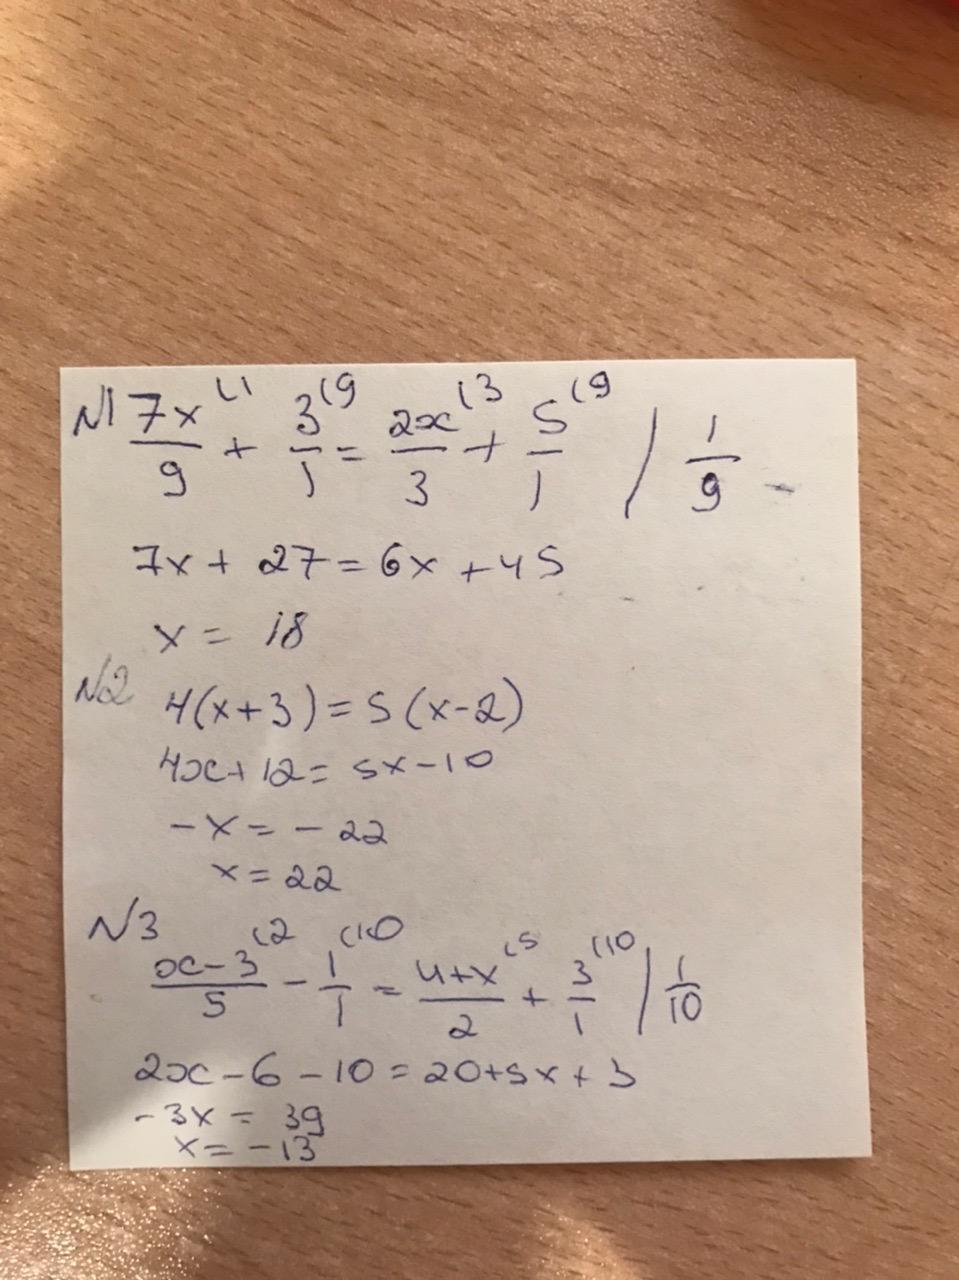 N1 7x/9 (1 + 3/1 (9 = 2x/3 (3 + 5/1 (9 / 1/9
7x + 27 = 6x + 45
x = 18
N2 4(x+3) = 5(x-2)
4x + 12 = 5x - 10
- x = - 22
x = 22
N3
x-3/5 (2 - 1/1 (10 = 4+x/2 (5 + 3/1 (10 / 1/10
2x - 6 - 10 = 20 + 5x + 3
- 3x = 39
x = - 13